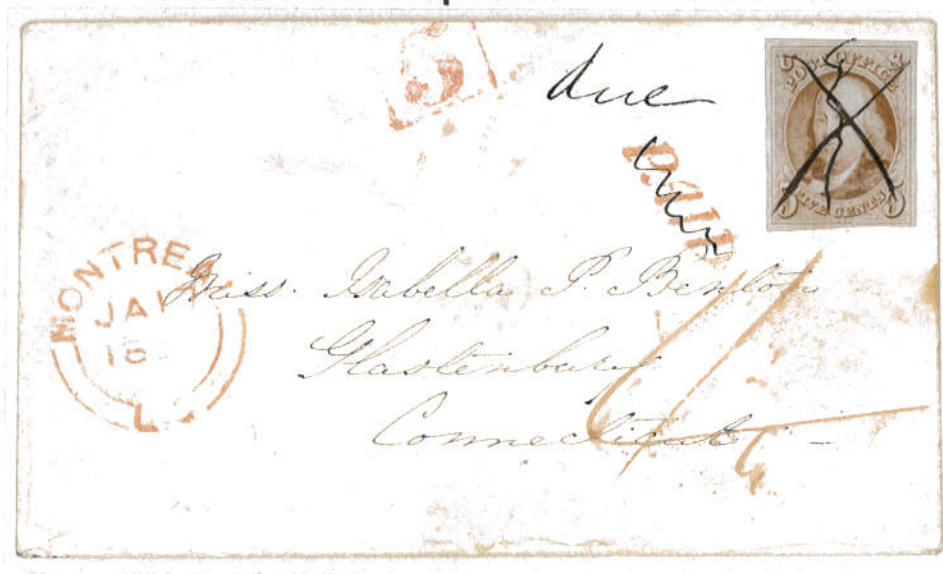 5
due
POST OFFICE
5 FIVE CENTS 5
PAID
MONTRE
JA
L
Miss. Isabella P. Benton
Glastenbury
Connecticut